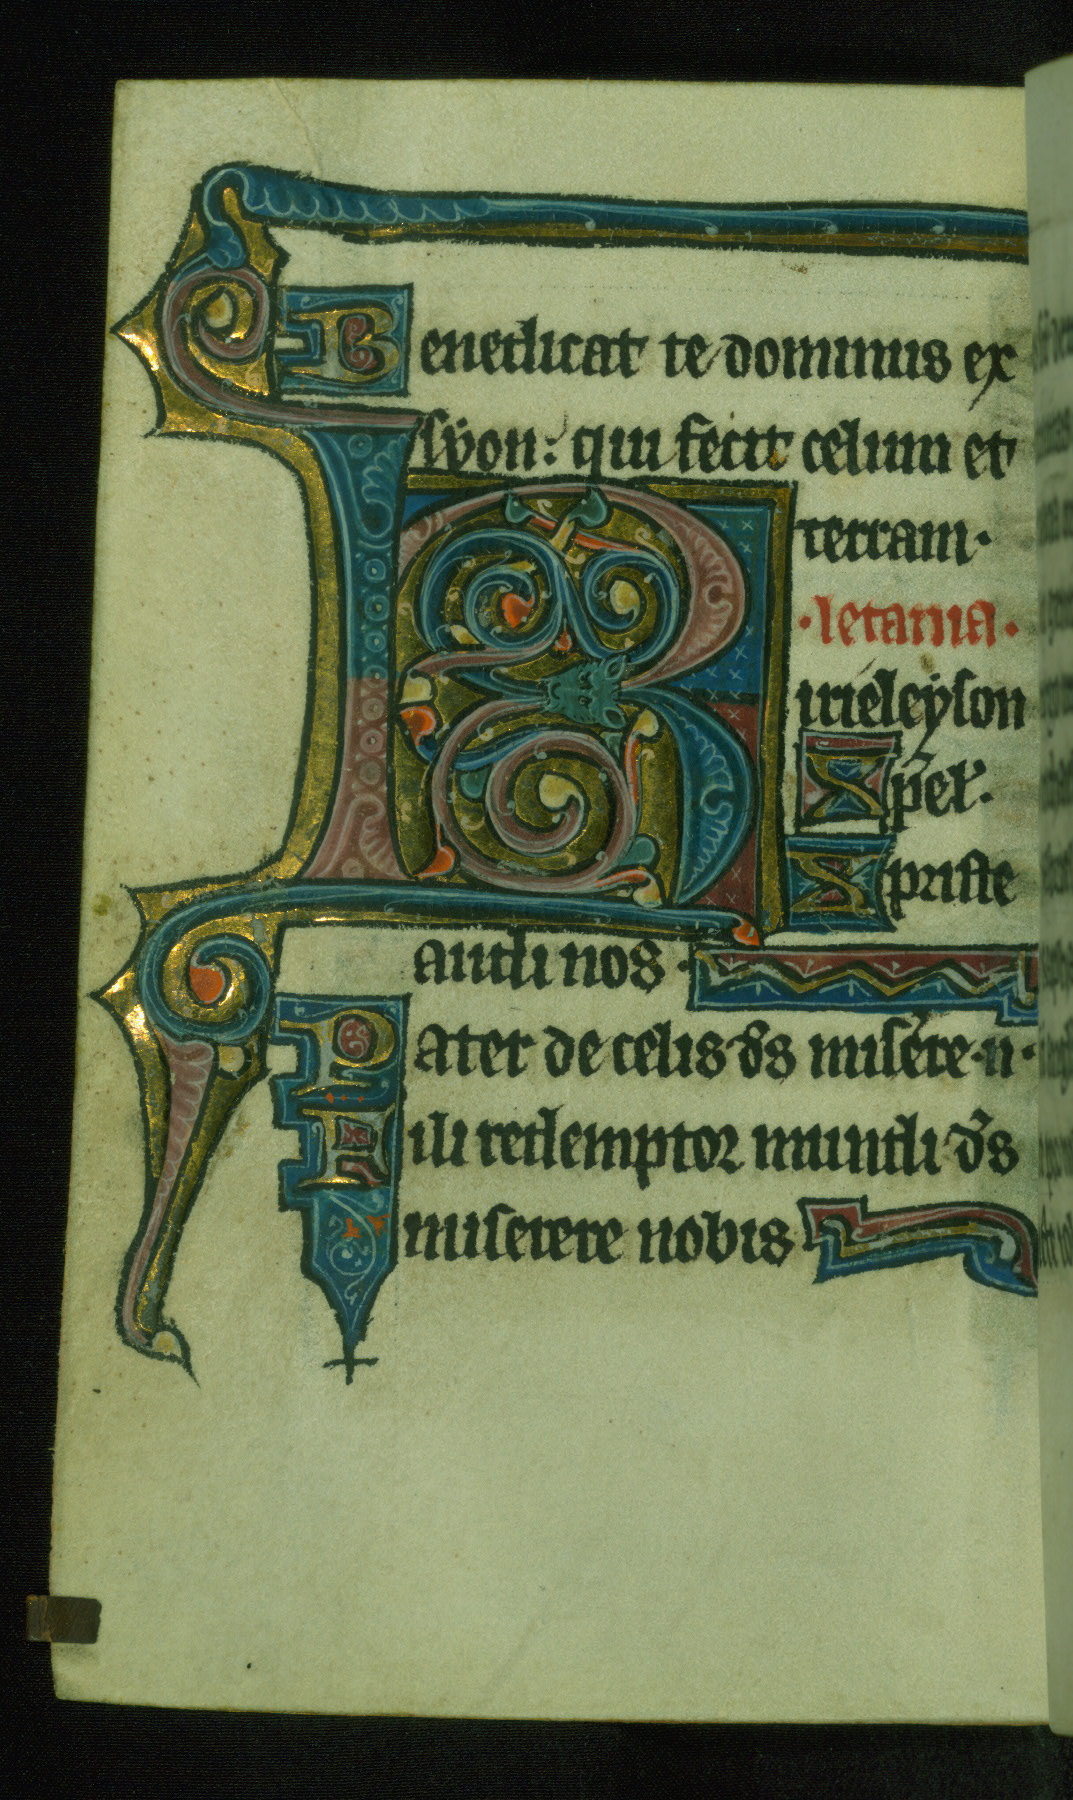 Benedicat te dominus ex
syon: qui fecit celum et
terram.
.letania.
Kirieleyson
Xp̃el'.
Xpriste
audi nos.
Pater de celis d̃s mis̃ere.n.
Fili redemptor mundi d̃s
miserere nobis